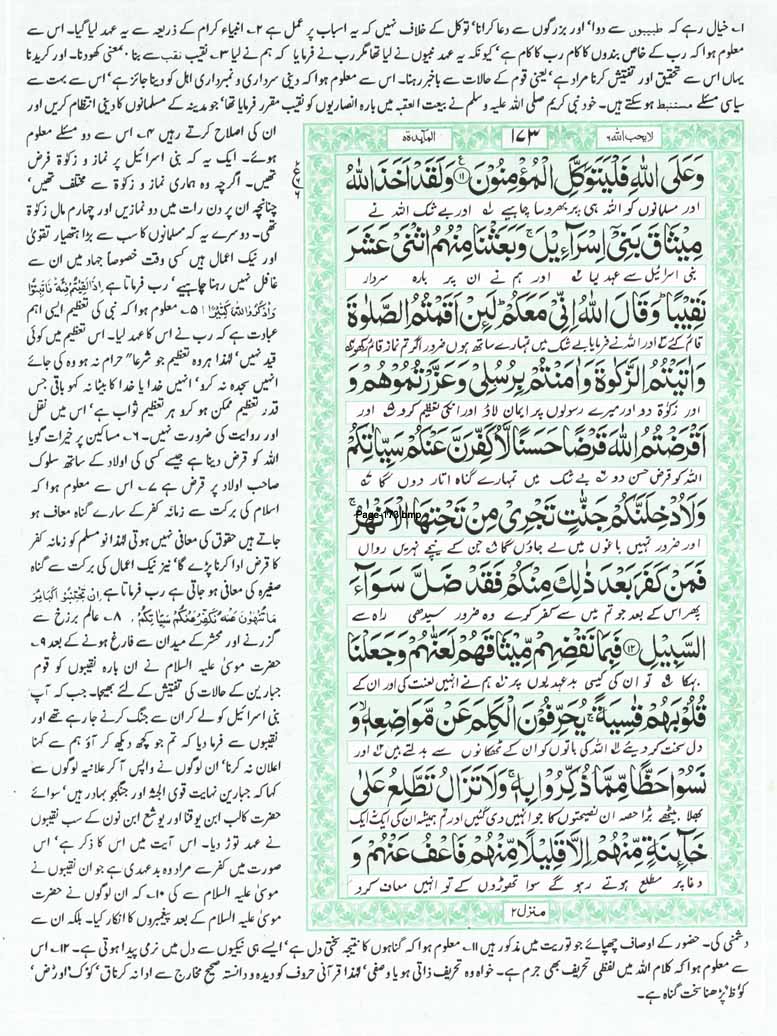 ۱؎ خیال رہے کہ طبیبوں سے دوا' اور بزرگوں سے دعا کرانا' توکل کے خلاف نہیں کہ یہ اسباب پر عمل ہے ۲؎ انبیاء کرام کے ذریعہ سے یہ عہد لیا گیا۔ اس سے
معلوم ہوا کہ رب کے خاص بندوں کا کام رب کا کام ہے' کیونکہ یہ عہد نبیوں نے لیا تھا مگر رب نے فرمایا کہ ہم نے لیا ۳؎ نقیب نقب سے بنا۔ بمعنی کھودنا۔ اور کریدنا
یہاں اس سے تحقیق اور تفتیش کرنا مراد ہے' یعنی قوم کے حالات سے باخبر رہنا۔ اس سے معلوم ہوا کہ دینی سرداری و نمبرداری اہل کو دینا جائز ہے' اس سے بہت سے
سیاسی مسئلے مستنبط ہو سکتے ہیں۔ خود نبی کریم صلی اللہ علیہ وسلم نے بیعت العقبہ میں بارہ انصاریوں کو نقیب مقرر فرمایا تھا' جو مدینہ کے مسلمانوں کا دینی انتظام کریں اور
لایحب اللہ ۶
۱۷۳
المآئدۃ ۵
وَعَلَى اللّٰهِ فَلْيَتَوَكَّلِ الْمُؤْمِنُوْنَ ۝۱۱ وَلَقَدْ اَخَذَ اللّٰهُ
اور مسلمانوں کو اللہ ہی پر بھروسا چاہیے ۱؎ اور بے شک اللہ نے
مِيْثَاقَ بَنِيْٓ اِسْرَآءِيْلَ ۚ وَبَعَثْنَا مِنْهُمُ اثْنَيْ عَشَرَ
بنی اسرائیل سے عہد لیا ۲؎ اور ہم نے ان پر بارہ سردار
نَقِيْبًا ؕ وَقَالَ اللّٰهُ اِنِّيْ مَعَكُمْ ؕ لَئِنْ اَقَمْتُمُ الصَّلٰوةَ
قائم کئے ۳؎ اور اللہ نے فرمایا بے شک میں تمہارے ساتھ ہوں ضرور اگر تم نماز قائم رکھو
وَاٰتَيْتُمُ الزَّكٰوةَ وَاٰمَنْتُمْ بِرُسُلِيْ وَعَزَّرْتُمُوْهُمْ وَ
اور زکوٰۃ دو اور میرے رسولوں پر ایمان لاؤ اور انکی تعظیم کرو ۵؎ اور
اَقْرَضْتُمُ اللّٰهَ قَرْضًا حَسَنًا لَّاُكَفِّرَنَّ عَنْكُمْ سَيِّاٰتِكُمْ
اللہ کو قرض حسن دو ۶؎ بے شک میں تمہارے گناہ اتار دوں گا ۷؎
وَلَاُدْخِلَنَّكُمْ جَنّٰتٍ تَجْرِيْ مِنْ تَحْتِهَا الْاَنْهٰرُ ۚ
Page-173.bmp
اور ضرور تمہیں باغوں میں لے جاؤں گا ۸؎ جن کے نیچے نہریں رواں
فَمَنْ كَفَرَ بَعْدَ ذٰلِكَ مِنْكُمْ فَقَدْ ضَلَّ سَوَآءَ
پھر اس کے بعد جو تم میں سے کفر کرے وہ ضرور سیدھی راہ سے
السَّبِيْلِ ۝۱۲ فَبِمَا نَقْضِهِمْ مِّيْثَاقَهُمْ لَعَنّٰهُمْ وَجَعَلْنَا
بہکا ۹؎ تو ان کی کیسی بدعہدیوں پر ۱۰؎ ہم نے انہیں لعنت کی اور ان کے
قُلُوْبَهُمْ قٰسِيَةً ۚ يُحَرِّفُوْنَ الْكَلِمَ عَنْ مَّوَاضِعِهٖ ۙ وَ
دل سخت کر دیئے ۱۱؎ اللہ کی باتوں کو ان کے ٹھکانوں سے بدلتے ہیں ۱۲؎ اور
نَسُوْا حَظًّا مِّمَّا ذُكِّرُوْا بِهٖ ۚ وَلَا تَزَالُ تَطَّلِعُ عَلٰى
بھلا بیٹھے بڑا حصہ ان نصیحتوں کا جو انہیں دی گئیں اور تم ہمیشہ ان کی ایک نہ ایک
خَآئِنَةٍ مِّنْهُمْ اِلَّا قَلِيْلًا مِّنْهُمْ فَاعْفُ عَنْهُمْ وَ
دغا پر مطلع ہوتے رہو گے سوا تھوڑوں کے تو انہیں معاف کر دو
منزل ۲
ان کی اصلاح کرتے رہیں ۴؎ اس سے دو مسئلے معلوم
ہوئے۔ ایک یہ کہ بنی اسرائیل پر نماز و زکوٰۃ فرض
تھیں۔ اگرچہ وہ ہماری نماز و زکوٰۃ سے مختلف تھیں'
چنانچہ ان پر دن رات میں دو نمازیں اور چہارم مال زکوٰۃ
تھی۔ دوسرے یہ کہ مسلمانوں کا سب سے بڑا ہتھیار تقویٰ
اور نیک اعمال ہیں کسی وقت خصوصاً جہاد میں ان سے
غافل نہیں رہنا چاہیے' رب فرماتا ہے اِذَا لَقِيْتُمْ فِئَةً فَاثْبُتُوْا
وَاذْكُرُوا اللّٰهَ كَثِيْرًا ۵؎ معلوم ہوا کہ نبی کی تعظیم ایسی اہم
عبادت ہے کہ رب نے اس کا عہد لیا۔ اس تعظیم میں کوئی
قید نہیں' لہٰذا ہر وہ تعظیم جو شرعاً حرام نہ ہو وہ کی جائے
انہیں سجدہ نہ کرو' انہیں خدا یا خدا کا بیٹا نہ کہو باقی جس
قدر تعظیم ممکن ہو کرو ہر تعظیم ثواب ہے' اس میں نقل
اور روایت کی ضرورت نہیں۔ ۶؎ مساکین پر خیرات گویا
اللہ کو قرض دینا ہے جیسے کسی کی اولاد کے ساتھ سلوک
صاحب اولاد پر قرض ہے ۷؎ اس سے معلوم ہوا کہ
اسلام کی برکت سے زمانہ کفر کے سارے گناہ معاف ہو
جاتے ہیں حقوق کی معافی نہیں ہوتی لہٰذا نو مسلم کو زمانہ کفر
کا قرض ادا کرنا پڑے گا' نیز نیک اعمال کی برکت سے گناہ
صغیرہ کی معافی ہو جاتی ہے رب فرماتا ہے اِنْ تَجْتَنِبُوْا كَبَآئِرَ
مَا تُنْهَوْنَ عَنْهُ نُكَفِّرْ عَنْكُمْ سَيِّاٰتِكُمْ ۸؎ عالم برزخ سے
گزرنے اور محشر کے میدان سے فارغ ہونے کے بعد ۹؎
حضرت موسیٰ علیہ السلام نے ان بارہ نقیبوں کو قوم
جبارین کے حالات کی تفتیش کے لئے بھیجا۔ جب کہ آپ
بنی اسرائیل کو لے کر ان سے جنگ کرنے جا رہے تھے اور
نقیبوں سے فرما دیا کہ تم جو کچھ دیکھ کر آؤ ہم سے کہنا
اعلان نہ کرنا' ان لوگوں نے واپس آ کر علانیہ لوگوں سے
کہا کہ جبارین نہایت قوی الجثہ اور جنگجو بہادر ہیں' سوائے
حضرت کالب ابن یوقنا اور یوشع ابن نون کے سب نقیبوں
نے عہد توڑ دیا۔ اس آیت میں اس کا ذکر ہے' اس
صورت میں کفر سے مراد وہ بدعہدی ہے جو ان نقیبوں نے
موسیٰ علیہ السلام سے کی ۱۰؎ کہ ان لوگوں نے حضرت
موسیٰ علیہ السلام کے بعد پیغمبروں کا انکار کیا۔ بلکہ ان سے
دشمنی کی۔ حضور کے اوصاف چھپائے جو توریت میں مذکور ہیں ۱۱؎ معلوم ہوا کہ گناہوں کا نتیجہ سختی دل ہے' ایسے ہی نیکیوں سے دل میں نرمی پیدا ہوتی ہے۔ ۱۲؎ اس
سے معلوم ہوا کہ کلام اللہ میں لفظی تحریف بھی جرم ہے۔ خواہ وہ تحریف ذاتی ہو یا وصفی' لہٰذا قرآنی حروف کو دیدہ و دانستہ صحیح مخارج سے ادا نہ کرنا ق' کو ک' اور ض'
کو' ظ' پڑھنا سخت گناہ ہے۔